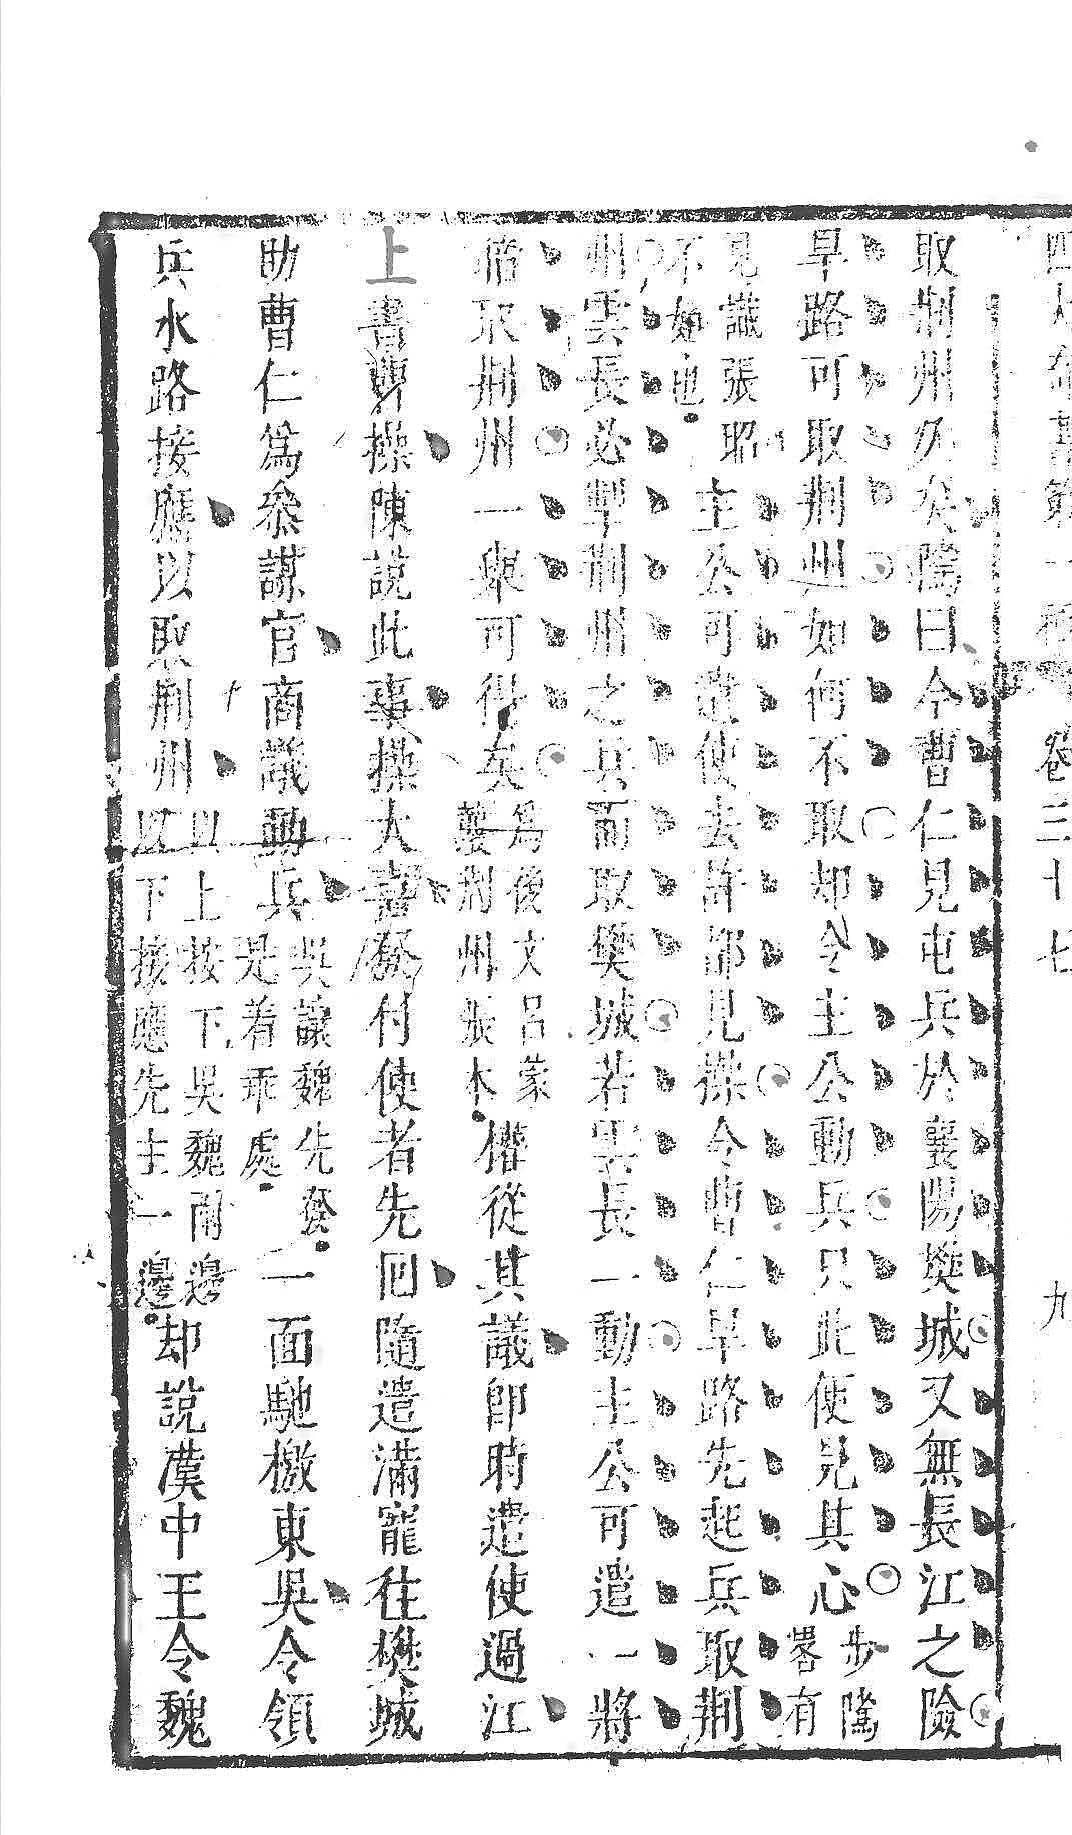 四大奇書第一種 卷三十七 九
取荆州久矣隲曰今曹仁見屯兵於襄陽樊城又無長江之險
旱路可取荆州如何不取却令主公動兵只此便見其心步隲畧有
見識張昭不如也主公可遣使去許都見操令曹仁旱路先起兵取荆
州雲長必掣荆州之兵而取樊城若雲長一動主公可遣一將
暗取荆州一舉可得矣為後文吕蒙襲荆州張本權從其議即時遣使過江
上書曹操陳說此事操大喜發付使者先回隨遣滿寵往樊城
助曹仁為參謀官商議動兵吳讓魏先發是着乖處一面馳檄東吳令領
兵水路接應以取荆州以上按下吳魏兩邊以下接應先主一邊却說漢中王令魏